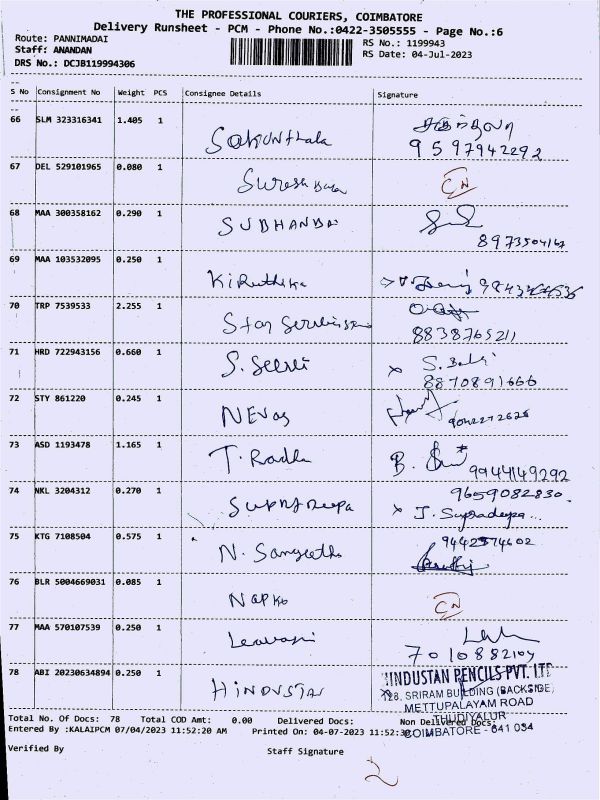 THE PROFESSIONAL COURIERS, COIMBATORE
Delivery Runsheet - PCM - Phone No.:0422-3505555 - Page No.:6
Route: PANNIMADAI
RS No.: 1199943
Staff: ANANDAN
RS Date: 04-Jul-2023
DRS No.: DCJB119994306
S No Consignment No Weight PCS Consignee Details Signature
66 SLM 323316341 1.405 1 Sakunthala
9597942292
67 DEL 529101965 0.080 1 CN
68 MAA 300358162 0.290 1 SUBHANDAI
69 MAA 103532095 0.250 1 Kiruthika
70 TRP 7539533 2.255 1 Star
8838765211
71 HRD 722943156 0.660 1 S. Selvi S.
8870891666
72 STY 861220 0.245 1
73 ASD 1193478 1.165 1 T. Radha B.
9944149292
74 NKL 3204312 0.270 1 9659082830.
J. Supradeepa...
75 KTG 7108504 0.575 1 N. Sangeetha
76 BLR 5004669031 0.085 1 CN
77 MAA 570107539 0.250 1
78 ABI 20230634894 0.250 1 HINDUSTAN
HINDUSTAN PENCILS PVT. LTD
128, SRIRAM BUILDING (BACKSIDE)
METTUPALAYAM ROAD
THUDIYALUR
COIMBATORE - 641 034
Total No. Of Docs: 78 Total COD Amt: 0.00 Delivered Docs: Non Delivered Docs:
Entered By :KALAIPCM 07/04/2023 11:52:20 AM Printed On: 04-07-2023 11:52:30
Verified By Staff Signature
2